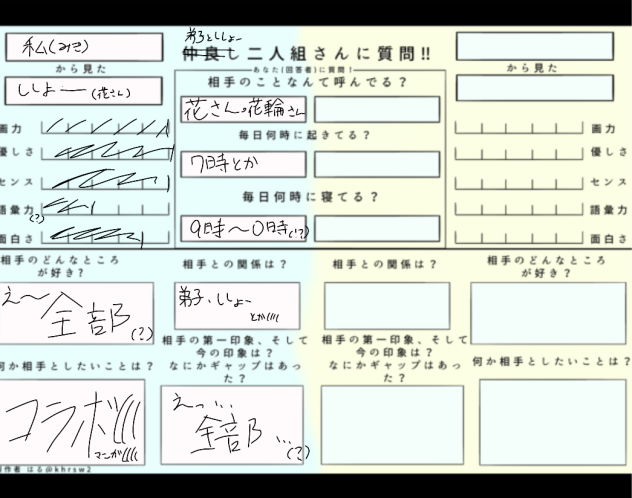 私(みき)
から見た
ししょー(花さん)
弟子とししょー
仲良し二人組さんに質問!!
あなた(回答者)に質問!
相手のことなんて呼んでる?
花さん。花輪さん
毎日何時に起きてる?
7時とか
毎日何時に寝てる?
9時〜0時(!?)
から見た
画力
優しさ
センス
語彙力
(?)
面白さ
画力
優しさ
センス
語彙力
面白さ
相手のどんなところ
が好き?
え〜
全部
(?)
相手との関係は?
弟子、ししょー
とか
相手との関係は?
相手のどんなところ
が好き?
何か相手としたいことは?
コラボ
マンガ
相手の第一印象、そして
今の印象は?
なにかギャップはあっ
た?
えっ…
全部…
(?)
相手の第一印象、そして
今の印象は?
なにかギャップはあっ
た?
何か相手としたいことは?
制作者 はる@khrsw2